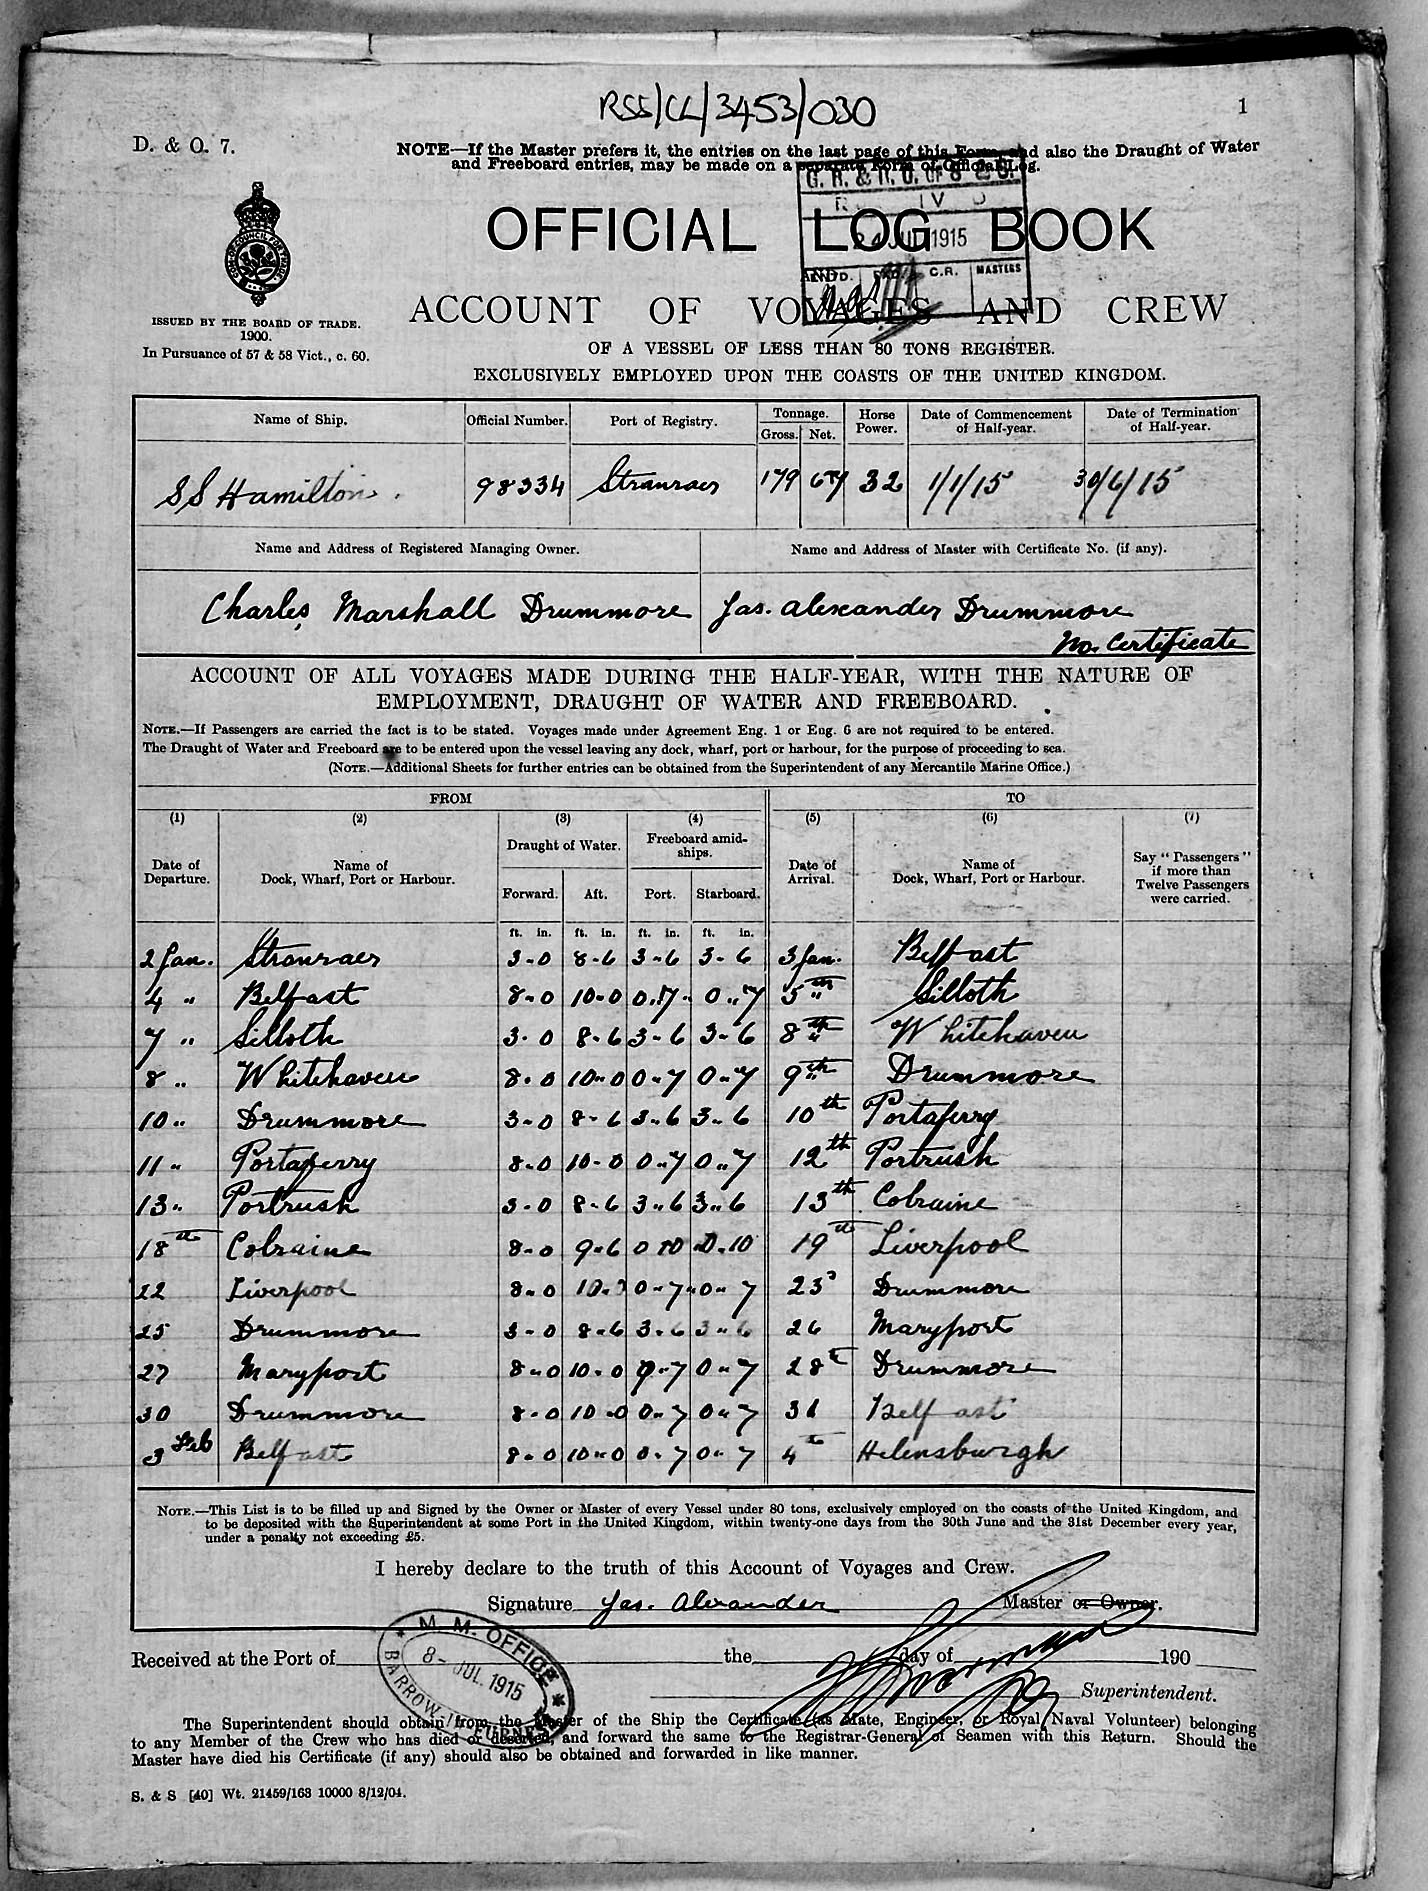 RSS/CL/3453/030
1
D. & O. 7.
NOTE—If the Master prefers it, the entries on the last page of this Form, and also the Draught of Water
and Freeboard entries, may be made on a separate Form of Official Log.
G. R. & R. O. OF S & S.
24 JUL 1915
C.R. MASTERS
OFFICIAL LOG BOOK
AND
ACCOUNT OF VOYAGES AND CREW
ISSUED BY THE BOARD OF TRADE.
1900.
In Pursuance of 57 & 58 Vict., c. 60.
OF A VESSEL OF LESS THAN 80 TONS REGISTER.
EXCLUSIVELY EMPLOYED UPON THE COASTS OF THE UNITED KINGDOM.
Name of Ship. Official Number. Port of Registry. Tonnage. Gross. Net. Horse Power. Date of Commencement of Half-year. Date of Termination of Half-year.
SS Hamilton. 98334 Stranraer 179 67 32 1/1/15 30/6/15
Name and Address of Registered Managing Owner. Name and Address of Master with Certificate No. (if any).
Charles Marshall Drummore Jas. Alexander Drummore
No. Certificate
ACCOUNT OF ALL VOYAGES MADE DURING THE HALF-YEAR, WITH THE NATURE OF
EMPLOYMENT, DRAUGHT OF WATER AND FREEBOARD.
NOTE.—If Passengers are carried the fact is to be stated. Voyages made under Agreement Eng. 1 or Eng. 6 are not required to be entered.
The Draught of Water and Freeboard are to be entered upon the vessel leaving any dock, wharf, port or harbour, for the purpose of proceeding to sea.
(NOTE.—Additional Sheets for further entries can be obtained from the Superintendent of any Mercantile Marine Office.)
FROM TO
(1) (2) (3) (4) (5) (6) (7)
Date of Departure. Name of Dock, Wharf, Port or Harbour. Draught of Water. Freeboard amid-ships. Date of Arrival. Name of Dock, Wharf, Port or Harbour. Say "Passengers" if more than Twelve Passengers were carried.
Forward. Aft. Port. Starboard.
ft. in. ft. in. ft. in. ft. in.
2 Jan. Stranraer 3-0 8-6 3-6 3-6 3 Jan. Belfast
4 " Belfast 8-0 10-0 0-7 0-7 5th " Silloth
7 " Silloth 3-0 8-6 3-6 3-6 8th " Whitehaven
8 " Whitehaven 8-0 10-0 0-7 0-7 9th " Drummore
10 " Drummore 3-0 8-6 3-6 3-6 10th Portaferry
11 " Portaferry 8-0 10-0 0-7 0-7 12th Portrush
13 " Portrush 3-0 8-6 3-6 3-6 13th Colraine
18th Colraine 8-0 9-6 0 10 0-10 19th Liverpool
22 Liverpool 8-0 10-0 0-7 0-7 23 Drummore
25 Drummore 3-0 8-6 3-6 3-6 26 Maryport
27 Maryport 8-0 10-0 0-7 0-7 28 Drummore
30 Drummore 8-0 10-0 0-7 0-7 31 Belfast
3 Feb Belfast 8-0 10-0 0-7 0-7 4th Helensburgh
NOTE.—This List is to be filled up and Signed by the Owner or Master of every Vessel under 80 tons, exclusively employed on the coasts of the United Kingdom, and
to be deposited with the Superintendent at some Port in the United Kingdom, within twenty-one days from the 30th June and the 31st December every year,
under a penalty not exceeding £5.
I hereby declare to the truth of this Account of Voyages and Crew.
Signature Jas. Alexander Master or Owner.
M. M. OFFICE
8- JUL. 1915
BARROW-IN-FURNESS
Received at the Port of the day of 190
Superintendent.
The Superintendent should obtain from the Master of the Ship the Certificate (as Mate, Engineer, or Royal Naval Volunteer) belonging
to any Member of the Crew who has died or deserted, and forward the same to the Registrar-General of Seamen with this Return. Should the
Master have died his Certificate (if any) should also be obtained and forwarded in like manner.
S. & S [40] Wt. 21459/163 10000 8/12/04.